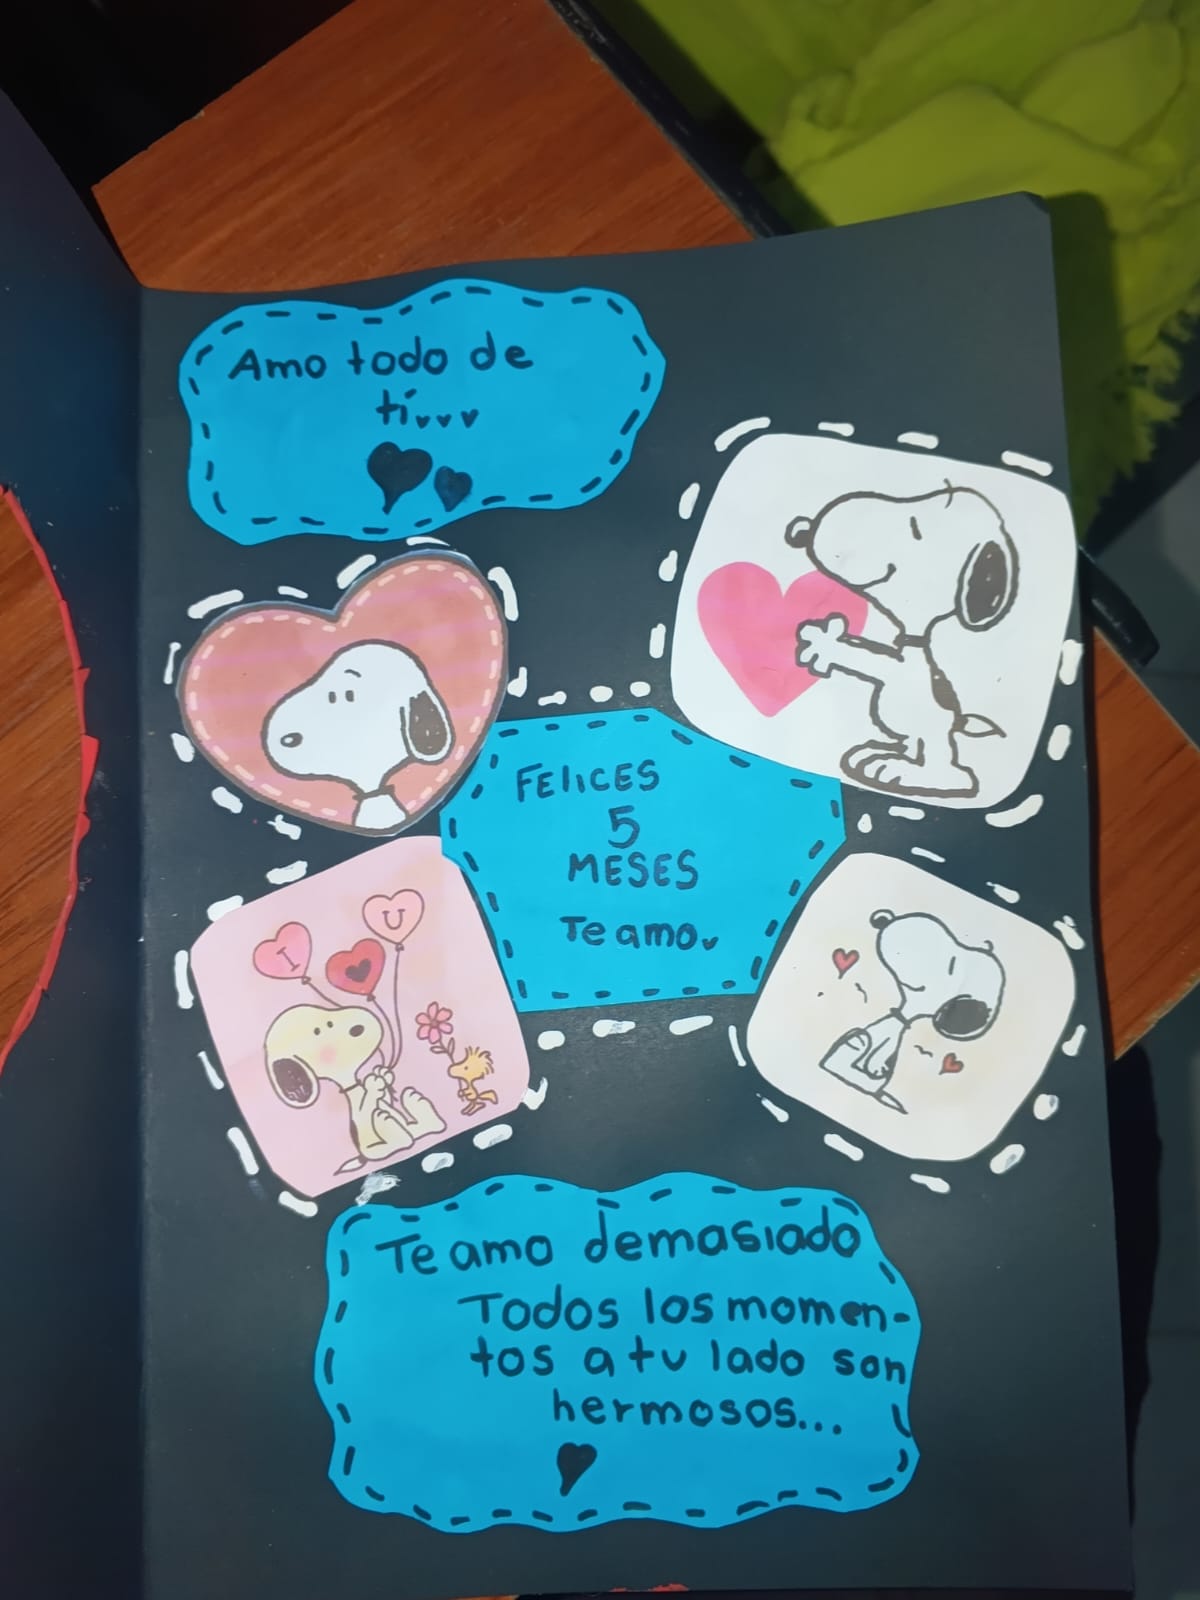 Amo todo de
tí...
FELICES
5
MESES
Te amo
I
U
Te amo demasiado
Todos los momen-
tos a tu lado son
hermosos...